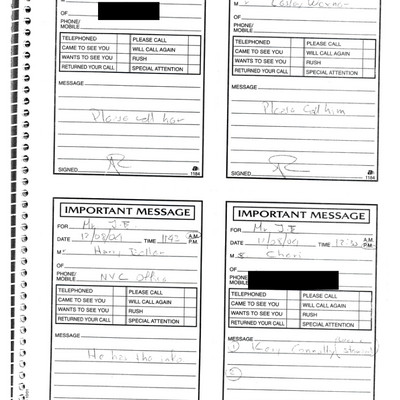 M
OF
PHONE/
MOBILE
TELEPHONED PLEASE CALL
CAME TO SEE YOU WILL CALL AGAIN
WANTS TO SEE YOU RUSH
RETURNED YOUR CALL SPECIAL ATTENTION
MESSAGE
Please call her
SIGNED
1184
M
OF
PHONE/
MOBILE
TELEPHONED PLEASE CALL
CAME TO SEE YOU WILL CALL AGAIN
WANTS TO SEE YOU RUSH
RETURNED YOUR CALL SPECIAL ATTENTION
MESSAGE
Please call him
SIGNED
1184
IMPORTANT MESSAGE
FOR Mr. J.E.
DATE TIME A.M.
P.M.
M Harry
OF
PHONE/
MOBILE NYC Office
TELEPHONED PLEASE CALL
CAME TO SEE YOU WILL CALL AGAIN
WANTS TO SEE YOU RUSH
RETURNED YOUR CALL SPECIAL ATTENTION
MESSAGE
He has the info
IMPORTANT MESSAGE
FOR Mr. J.E.
DATE TIME A.M.
P.M.
M
OF
PHONE/
MOBILE
TELEPHONED PLEASE CALL
CAME TO SEE YOU WILL CALL AGAIN
WANTS TO SEE YOU RUSH
RETURNED YOUR CALL SPECIAL ATTENTION
MESSAGE
1
2